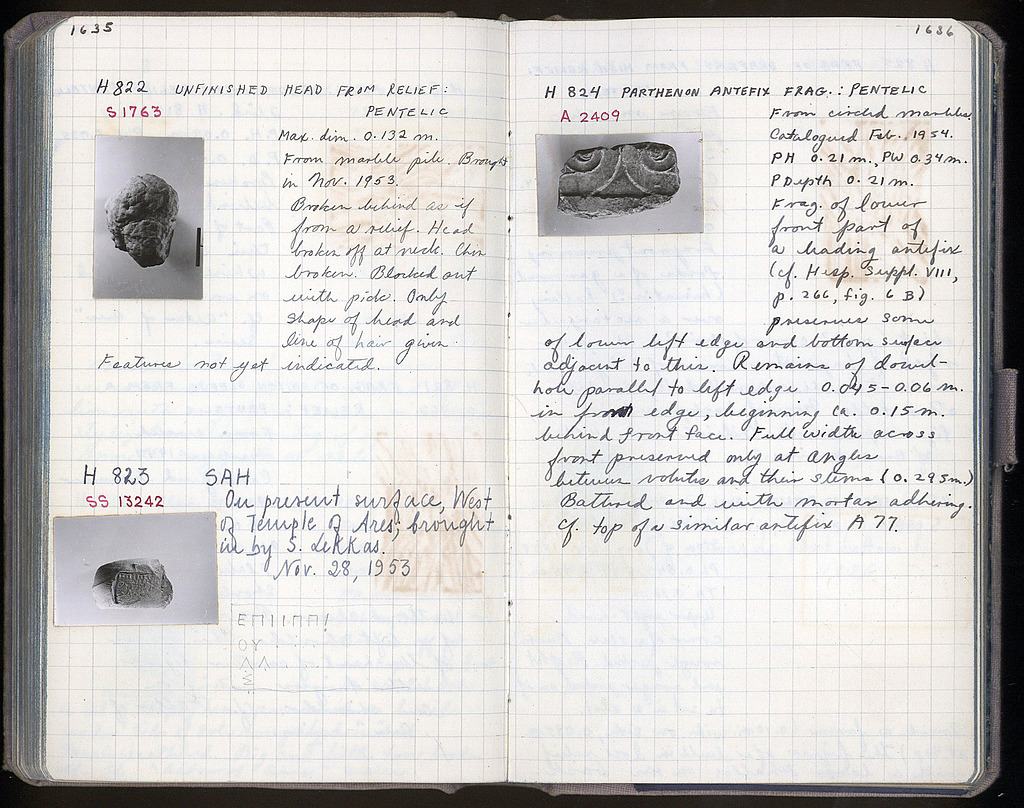 1635
H 822 UNFINISHED HEAD FROM RELIEF:
S 1763 PENTELIC
Max. dim. 0.132 m.
From marble pile. Brought
in Nov. 1953.
Broken behind as if
from a relief. Head
broken off at neck. Chin
broken. Blocked out
with pick. Only
shape of head and
line of hair given.
Features not yet indicated.
H 823 SAH
SS 13242
On present surface, West
of Temple of Ares; brought
in by S. Lekkas.
Nov. 28, 1953
ΕΠΙΙΠΠ
ΟΥ
1636
H 824 PARTHENON ANTEFIX FRAG.: PENTELIC
A 2409
From circled marbles.
Catalogued Feb. 1954.
PH 0.21 m., PW 0.34 m.
P Depth 0.21 m.
Frag. of lower
front part of
a leading antefix
(cf. Hesp. Suppl. VIII,
p. 266, fig. 6 B)
preserves some
of lower left edge and bottom surface
adjacent to this. Remains of dowel-
hole parallel to left edge 0.045-0.06 m.
in from edge, beginning ca. 0.15 m.
behind front face. Full width across
front preserved only at angles
between volutes and their stems (0.295 m.)
Battered and with mortar adhering.
Cf. top of a similar antefix A 77.